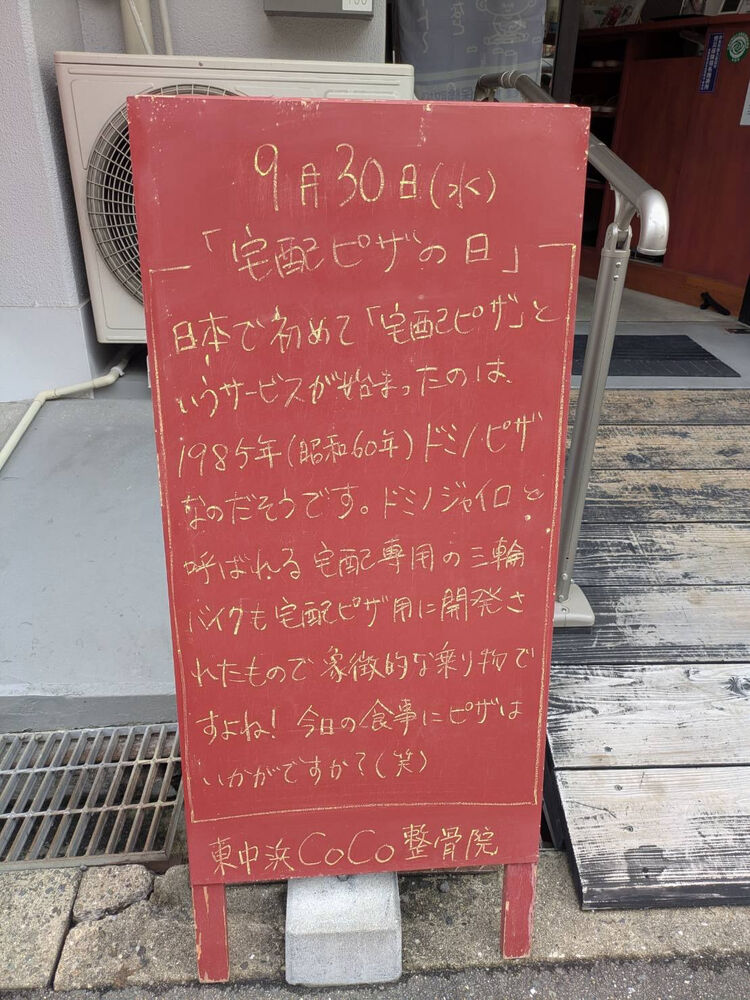 9月30日(水)
「宅配ピザの日」
日本で初めて「宅配ピザ」と
いうサービスが始まったのは、
1985年(昭和60年)ドミノピザ
なのだそうです。ドミノジャイロと
呼ばれる宅配専用の三輪
バイクも宅配ピザ用に開発さ
れたもので象徴的な乗り物で
すよね!今日の食事にピザは
いかがですか?(笑)
東中浜CoCo整骨院